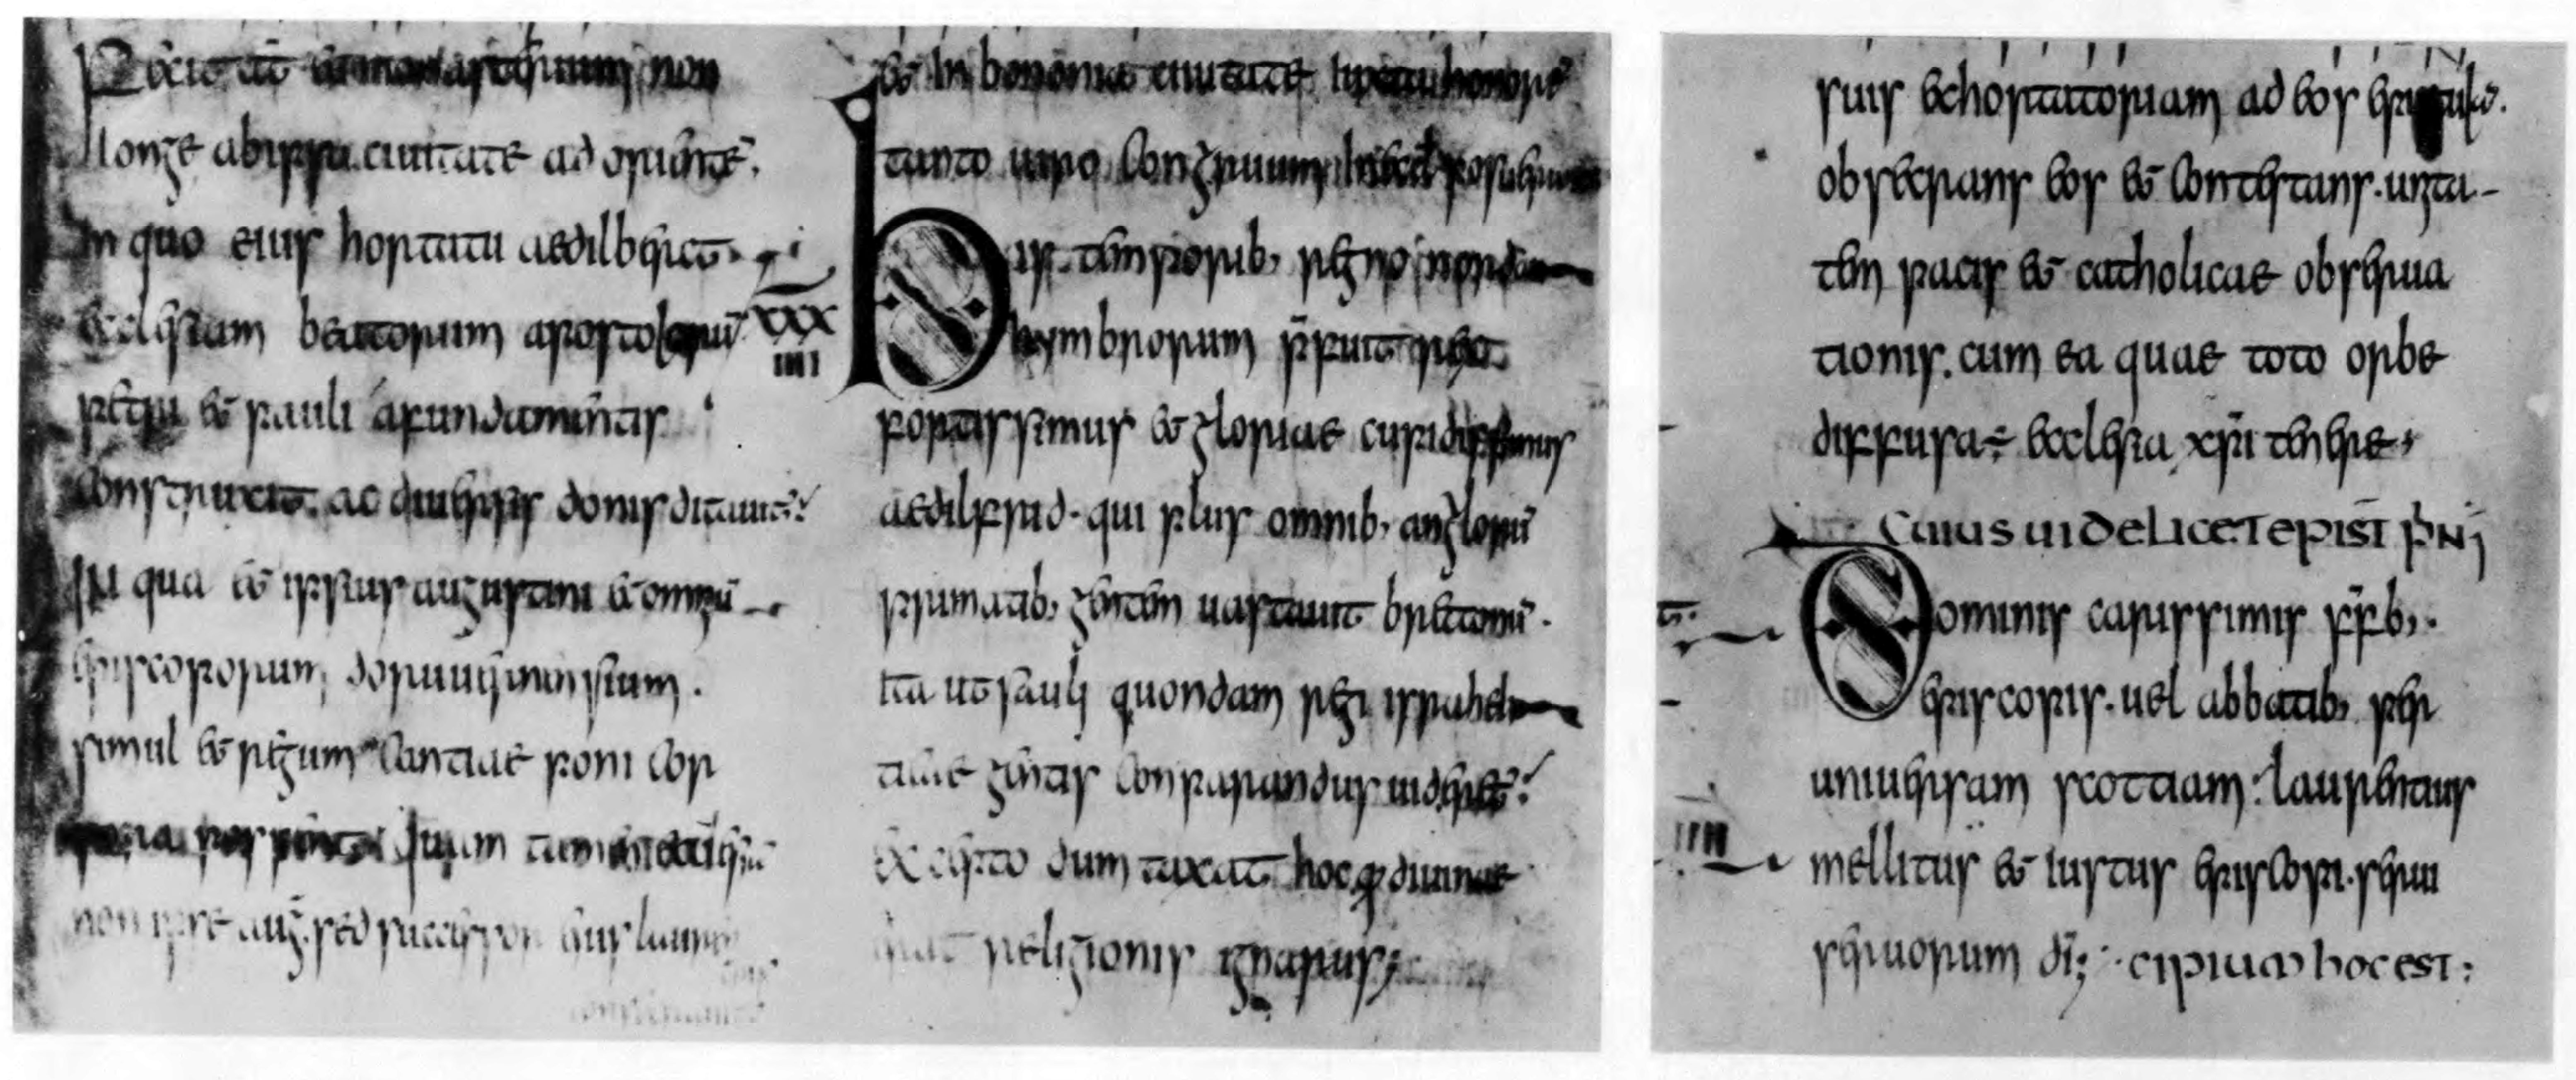 Fecit aū et monasterium non
longe ab ipsa ciuitate ad orientē.
In quo eius hortatu aedilberct
ecclesiam beatorum apostolorū
petri et pauli a fundamentis
construxit. ac diuersis donis ditauit.
In qua et ipsius augustini et omniū
episcoporum doruuernensium.
simul et regum cantiae poni cor
pora possint quam tamen ecclesiā
non ipse aug. sed successor eius
et in bononia ciuitate iuxta honorē
tanto uiro congruum posuerunt
i
XXX
IIII
his temporib; regno nordan
hymbrorum p̄fuit rex
fortissimus et gloriae cupidissimus
aedilfrid. qui plus omnib; anglorū
primatib; gentem uastauit brettonū.
ita ut sauli quondam regi israheli
ticae gentis conparandus uideretur.
excepto dum taxat hoc qđ diuinae
erat religionis ignarus;
suis exhortatoriam ad eos
obsecrans eos et contestans. unita-
tem pacis et catholicae obserua
tionis. cum ea quae toto orbe
diffusa ÷ ecclesia xp̄i tenere;
Cuius uidelicet epist p̄Nj
Dominis carissimis fr̄b;.
episcopis. uel abbatib; per
uniuersam scottiam. laurentius
mellitus et iustus episcopi. serui
seruorum dī; cipium hoc est;
IIII